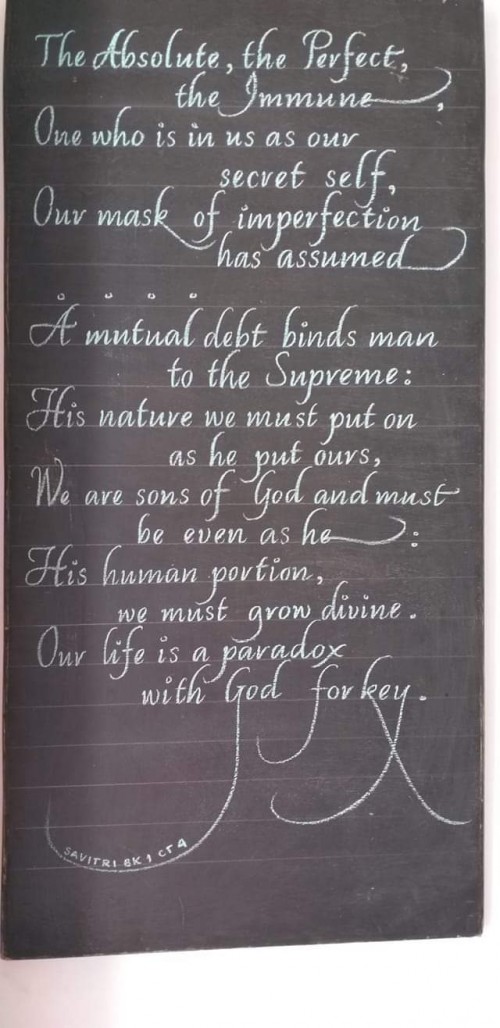 The Absolute, the Perfect,
the Immune,
One who is in us as our
secret self,
Our mask of imperfection
has assumed
. . . .
A mutual debt binds man
to the Supreme:
His nature we must put on
as he put ours,
We are sons of God and must
be even as he:
His human portion,
we must grow divine.
Our life is a paradox
with God for key.
SAVITRI BK 1 CT 4